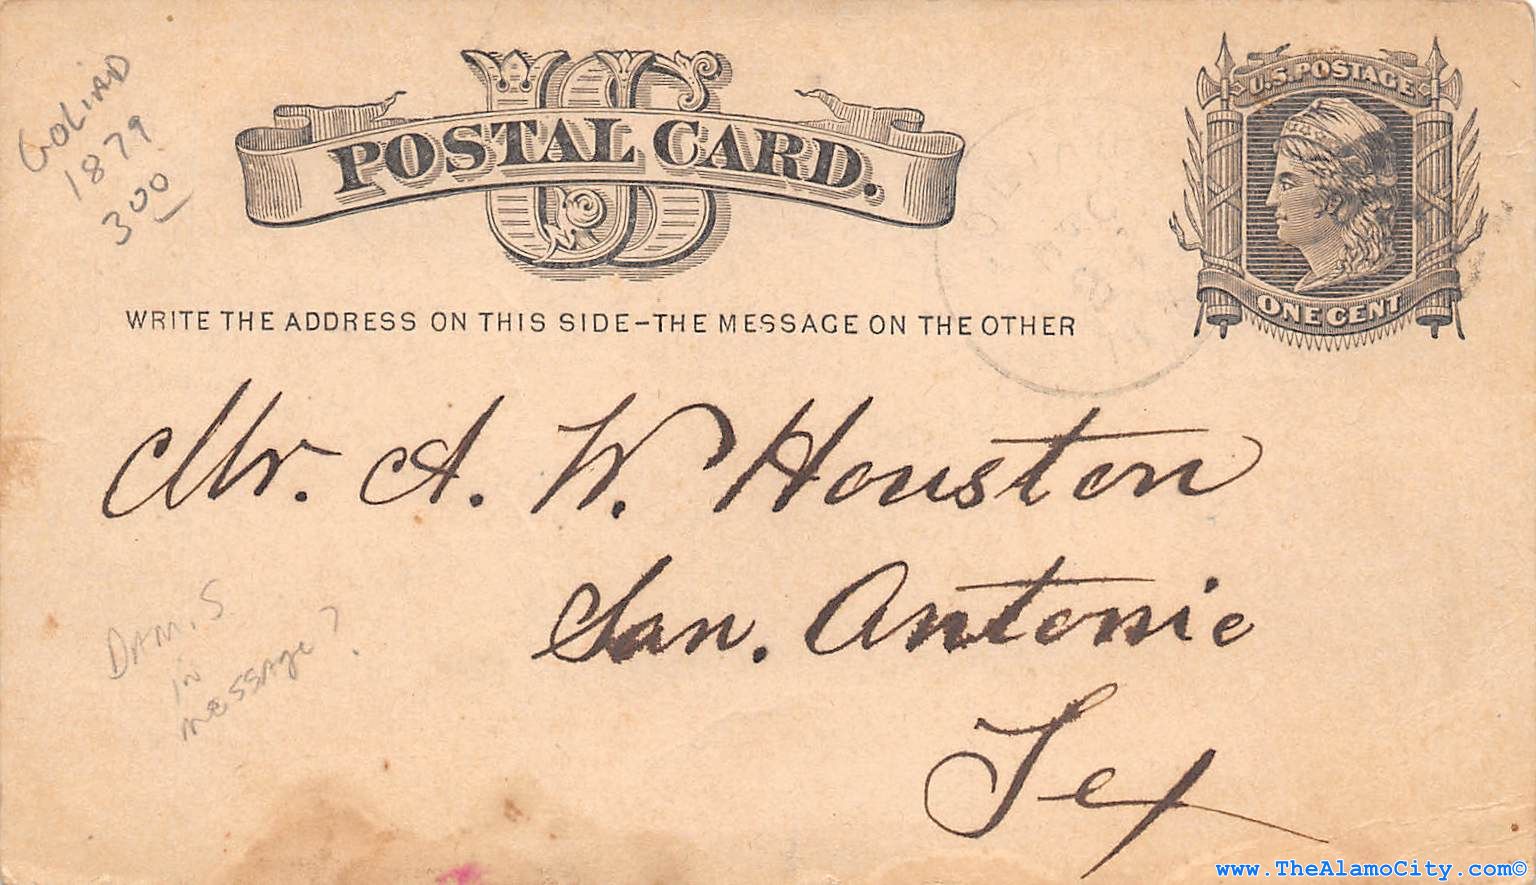 GOLIAD
1879
3 00
US
POSTAL CARD.
U.S. POSTAGE
ONE CENT
WRITE THE ADDRESS ON THIS SIDE-THE MESSAGE ON THE OTHER
Mr. A. W. Houston
San. Antonio
Tex
in
message?
www.TheAlamoCity.com©